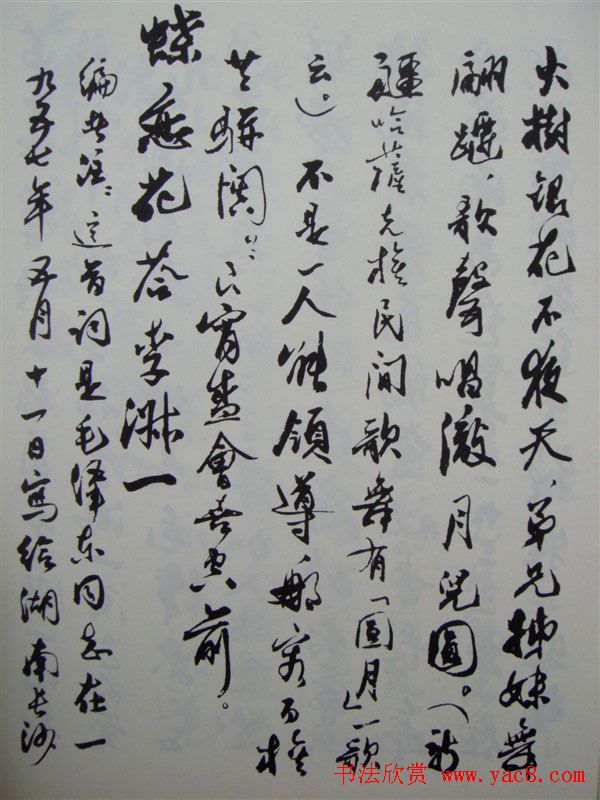 火樹銀花不夜天，弟兄姊妹舞
翩躚，歌聲唱澈月兒圓。（新
疆哈薩克族民间歌舞有「圓月」一歌
云）。不是一人能領導，那容百族
共駢闐？良宵盛會喜空前。
蝶恋花 答李淑一
编者注：這首词是毛澤东同志在一
九五七年五月十一日寫给湖南长沙
书法欣赏 www.yac8.com